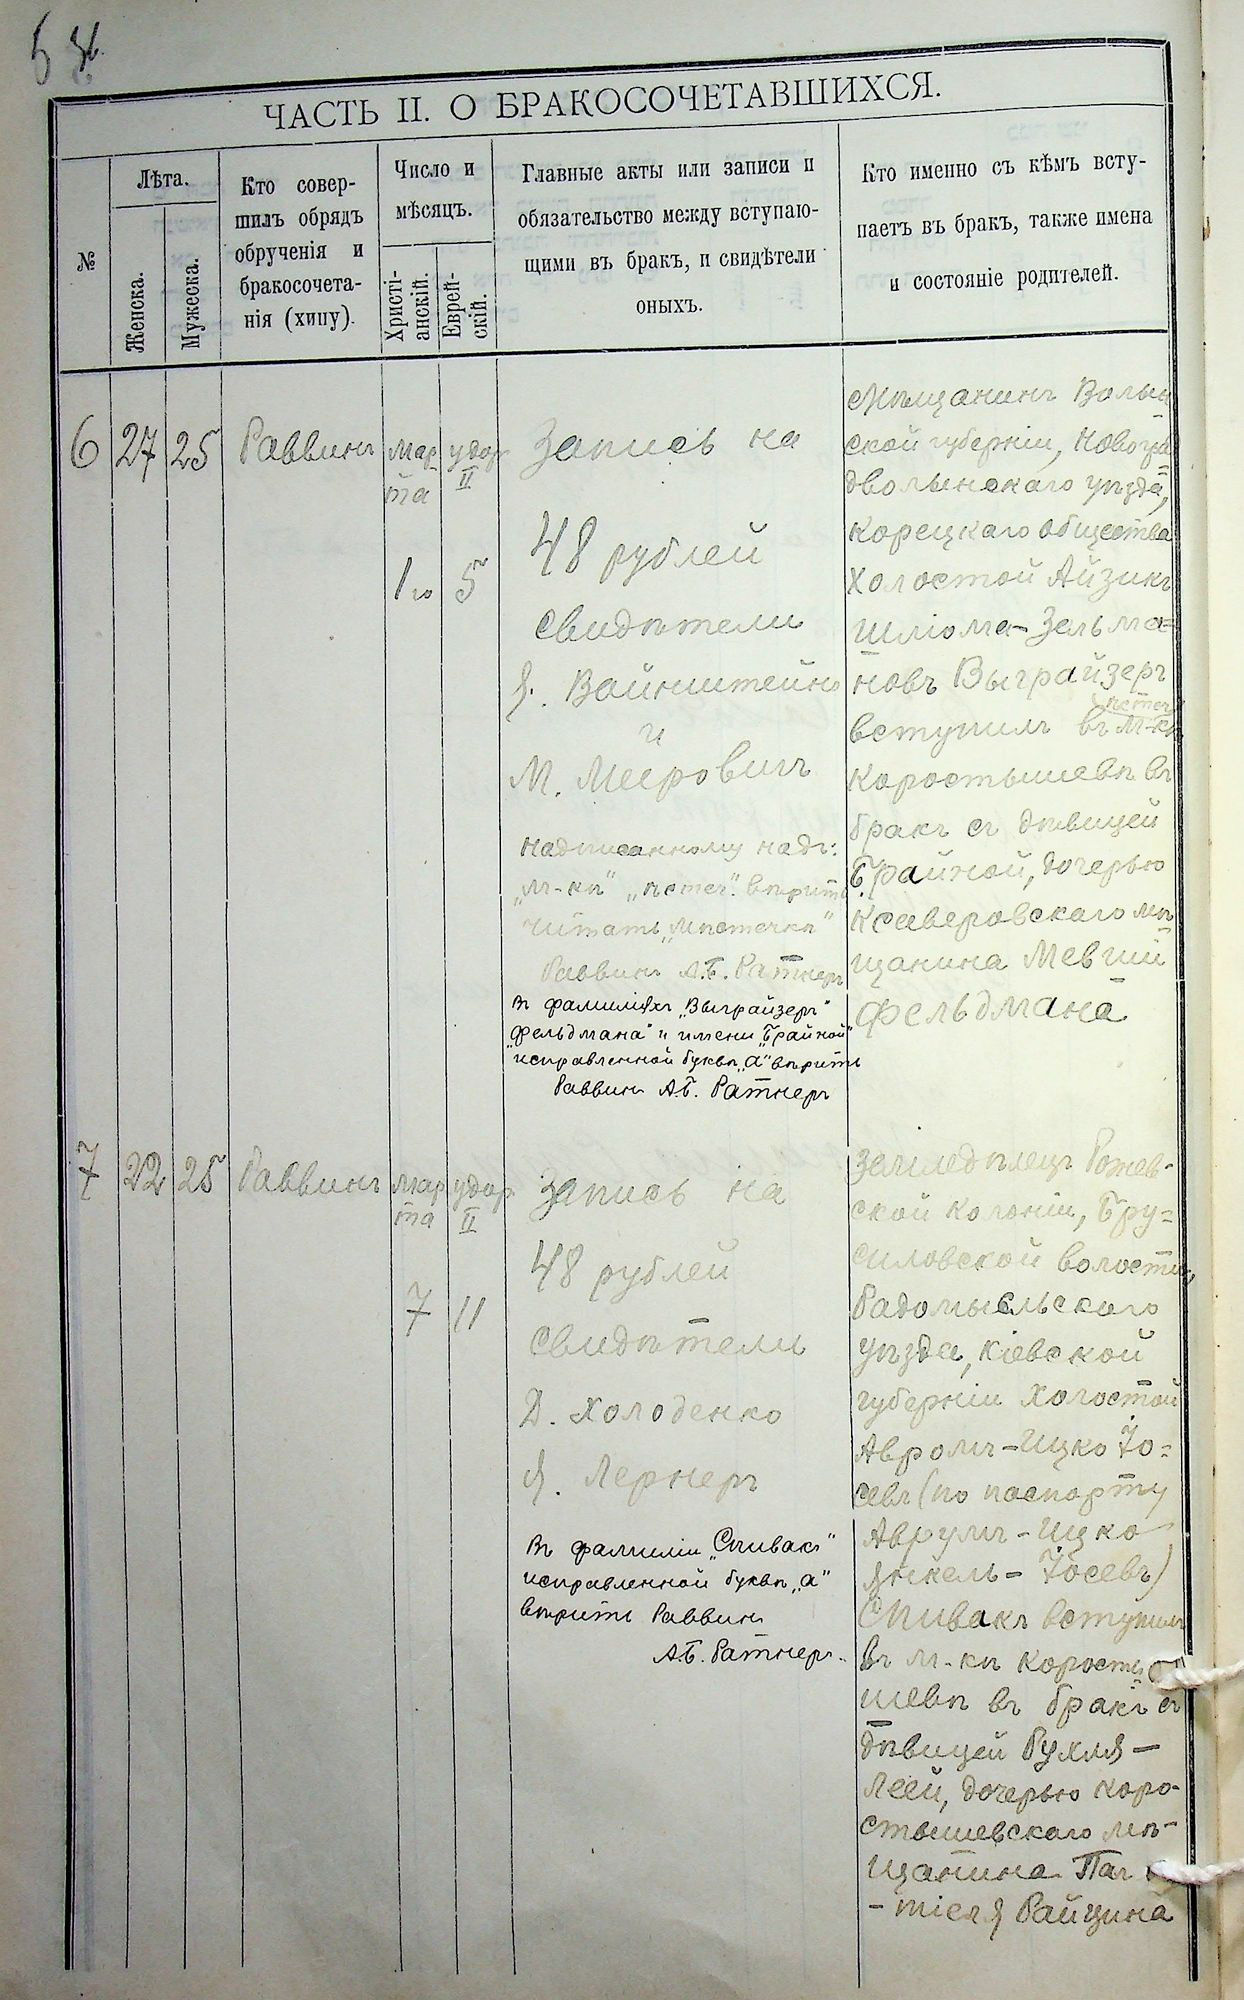 ЧАСТЬ II. О БРАКОСОЧЕТАВШИХСЯ.
№
Лѣта.
Женска.
Мужеска.
Кто совер-
шилъ обрядъ
обрученія и
бракосочета-
нія (хипу).
Число и
мѣсяцъ.
Христі-
анскій.
Еврей-
скій.
Главные акты или записи и
обязательство между вступаю-
щими въ бракъ, и свидѣтели
оныхъ.
Кто именно съ кѣмъ всту-
паетъ въ бракъ, также имена
и состояніе родителей.
6
27
25
Раввинъ
Мар
та
1го
удор
II
5
Запись на
48 рублей
Свидѣтели
Я. Вайнштейнъ
и
М. Мееровичъ
надписанному надъ:
„м-кѣ" „ѣстеч". вѣрить
читать „мѣстечкѣ"
Раввинъ А.Б. Ратнеръ
Въ фамиліяхъ „Выграйзеръ"
„Фельдмана" и имени „Брайной"
исправленной буквѣ „а" вѣрить
Раввинъ А.Б. Ратнеръ
Мѣщанинъ Волын
ской губерніи, Новогра
дволынскаго уѣзда,
Корецкаго общества
холостой Айзикъ
Шліома-Зельма=
новъ Выграйзеръ
ѣстеч
вступилъ въ м-кѣ
Коростышевѣ въ
бракъ съ дѣвицей
Брайной, дочерью
Ксаверовскаго мѣ
щанина Мевшій
Фельдмана
7
22
25
Раввинъ
Мар
та
7
удор
II
11
Запись на
48 рублей
Свидѣтели
Д. Холоденко
Я. Лернеръ
Въ фамиліи „Спивакъ"
исправленной буквѣ „а"
вѣрить Раввинъ
А.Б. Ратнеръ.
Земледѣлецъ Рожев-
ской колоніи, Бру=
силовской волости,
Радомысльскаго
уѣзда, Кіевской
губерніи холостой
Авромъ-Ицко Іо=
севъ (по паспорту
Аврумъ-Ицко
Янкель-Іосевъ)
Спивакъ вступилъ
въ м-кѣ Коросты
шевѣ въ бракъ съ
дѣвицей Рухля-
Леей, дочерью Коро-
стышевскаго мѣ-
щанина
-тіеля Райцина